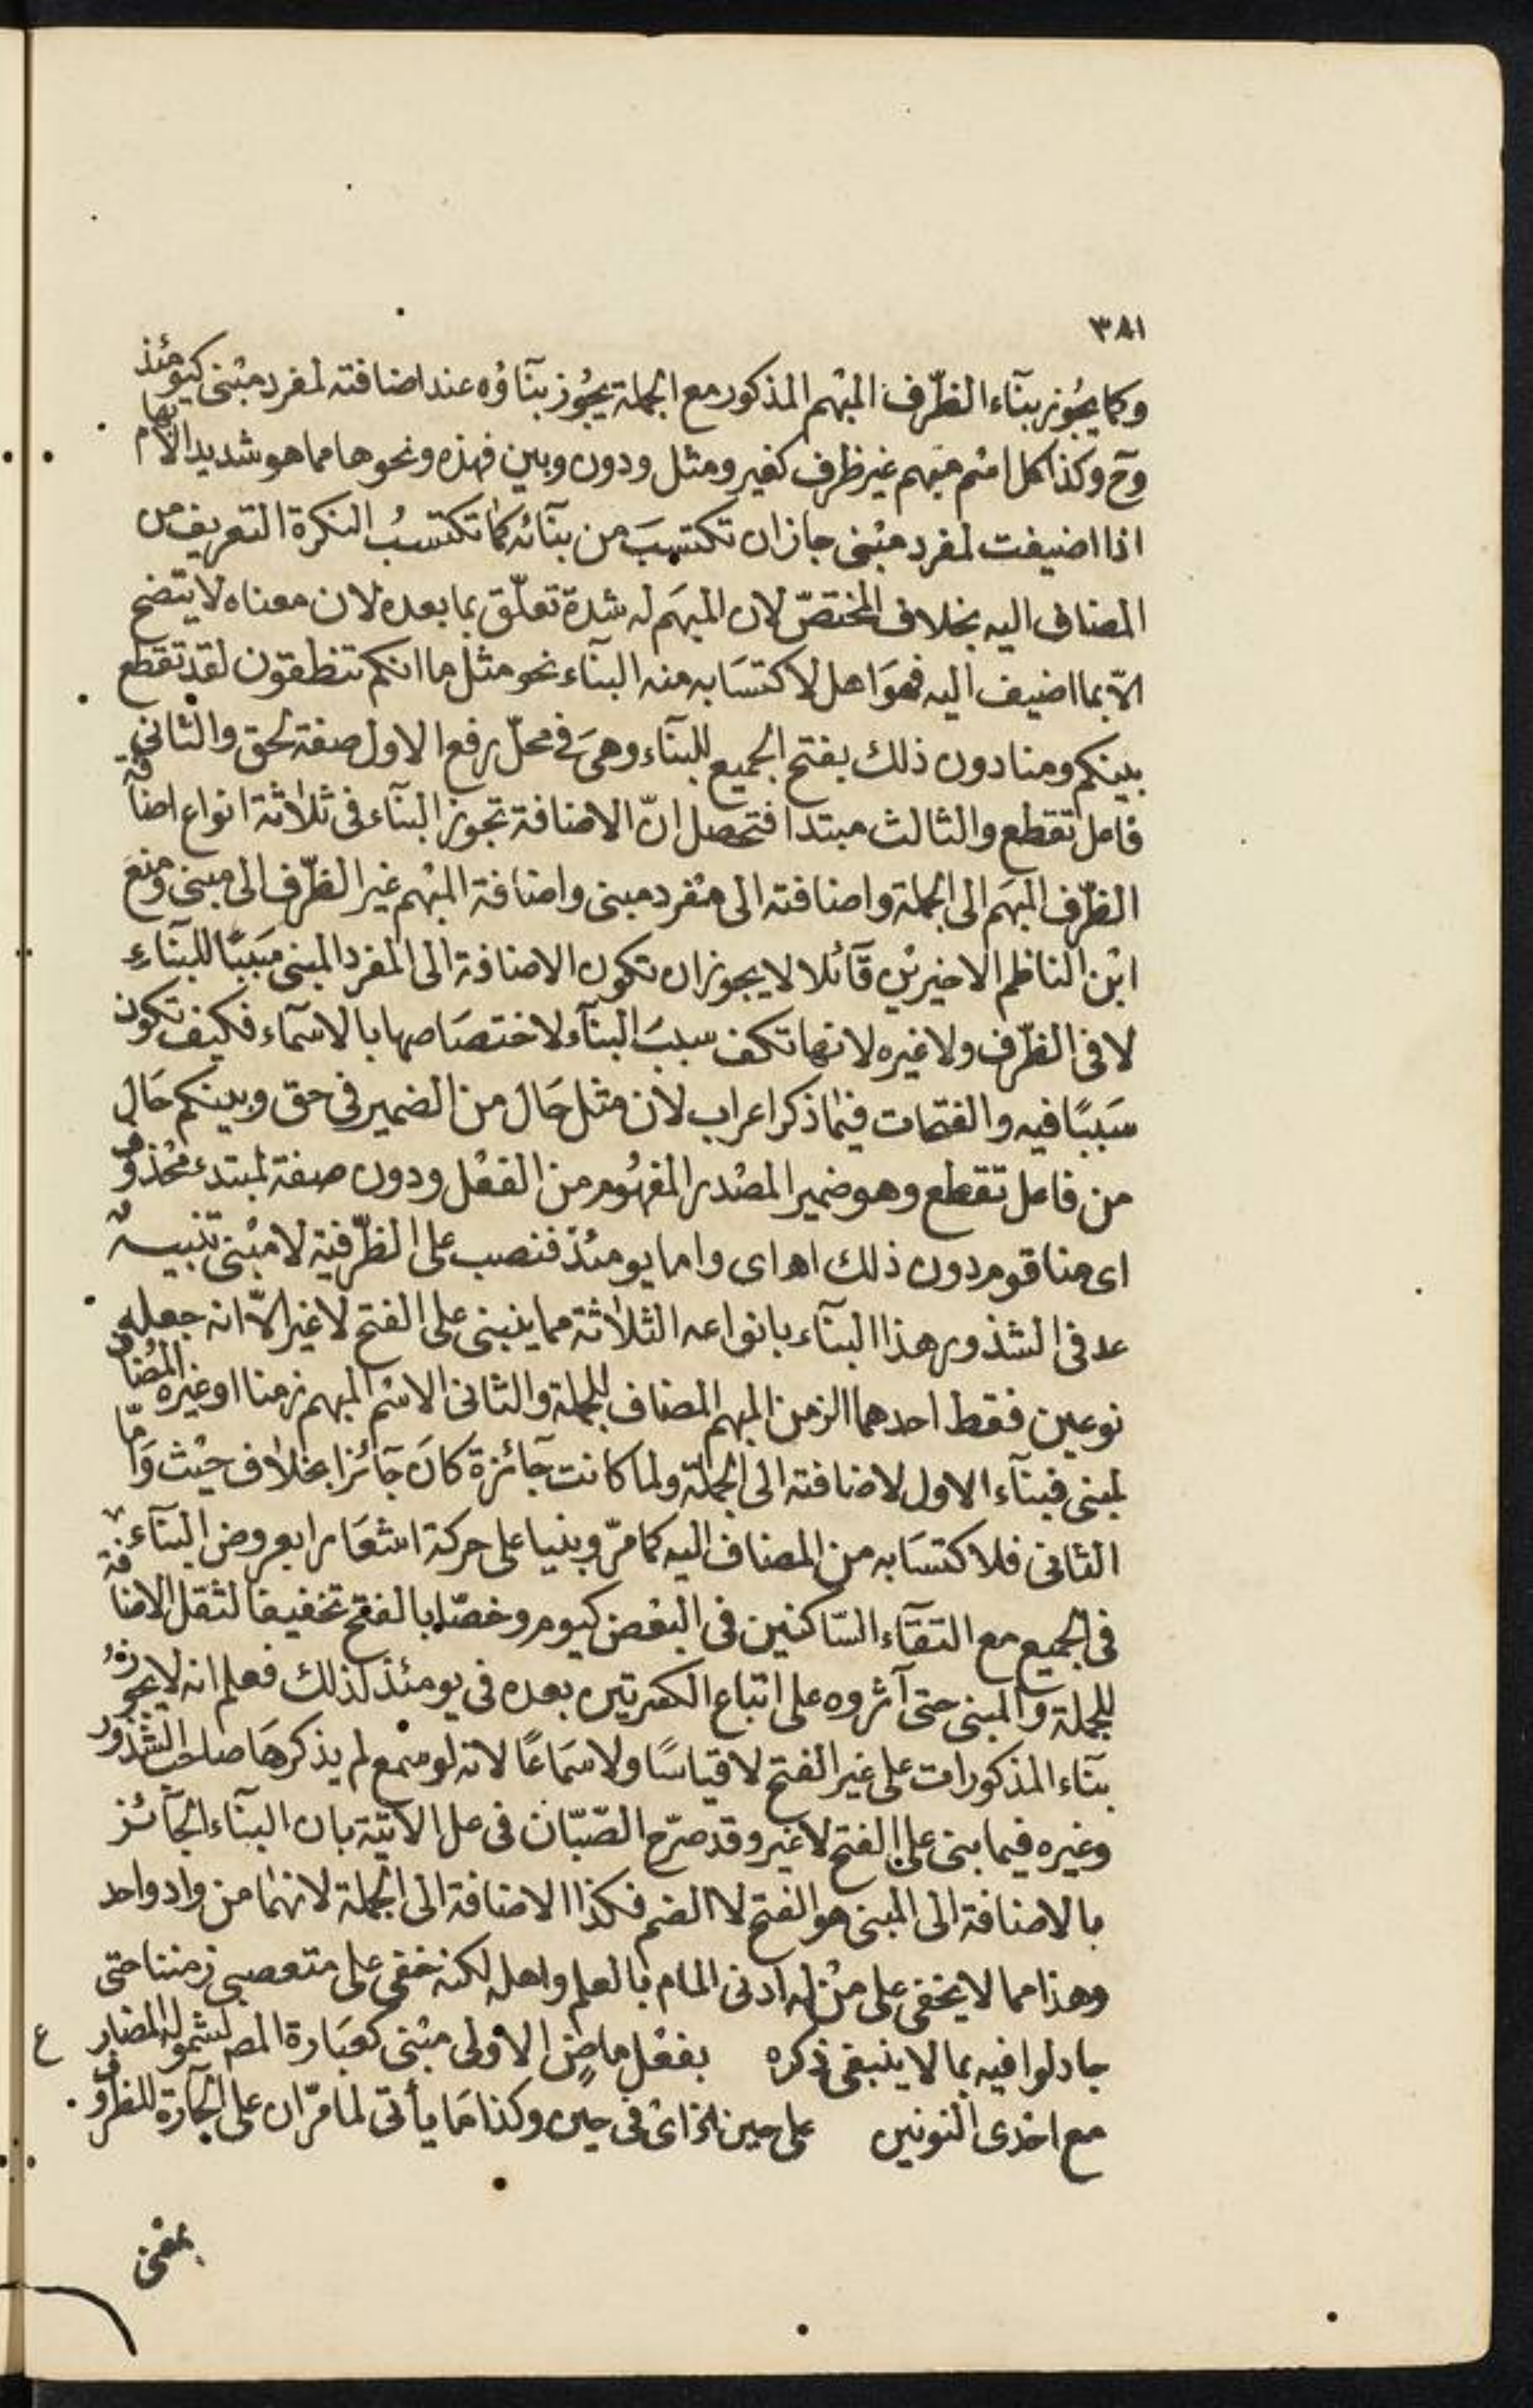 ٣٨١
وكما يجُوز بنآء الظّرف المبْهم المذكور مع الجملة يجُوز بنآؤه عند اضافته لمفرد مبْنى كيومئذ
وح وكذا كل اسْم مبهم غير ظرف كغير ومثل ودون وبين فهذه ونحوها مما هو شديد الابهام
اذا اضيفت لمفرد مبْنى جاز ان تكتسبَ من بنآئه كما تكتسبُ النكرة التعريف من
المضاف اليه بخلاف المختصّ لان المبهَم له شدة تعلّق بما بعده لان معناه لا يتضح
الّا بما اضيف اليه فهوَ اهل لاكتسَابه منه البنآء نحو مثل ما انكم تنطقون لقد تقطع
بينكم ومنا دون ذلك بفتح الجميع للبنآء وهىَ فى محلّ رفع الاول صفة لحق والثانى
فاعل تقطع والثالث مبتدا فتحصل انّ الاضافة تجوز البنآء فى ثلاثة انواع اضافة
الظّرف المبهَم الى الجملة واضافته الى مفْرد مبنى واضافة المبْهم غير الظّرف الى مبنى ومنعَ
ابْن الناظم الاخيريْن قآئلا لا يجوز ان تكون الاضافة الى المفرد المبنى سَببًا للبنآءِ
لا فى الظّرف ولا غيره لانها تكف سببَ البنآء لاختصَاصها بالاسمآء فكيف تكون
سَببًا فيه والفتحات فيما ذكر اعراب لان مثل حَال من الضمير فى حق وبينكم حَال
من فاعل تقطع وهو ضمير المصْدر المفهُوم من الفعْل ودون صفة لمبتدء محْذوف
اى منا قوم دون ذلك اهـ اى واما يومئذ فنصب على الظّرفية لا مبْنى تنبيه
عد فى الشذور هذا البنآء بانواعه الثلاثة مما ينبنى على الفتح لا غير الّا انه جعله
نوعين فقط احدهما الزمن المبهم المضاف للجملة والثانى الاسْم المبهم زمنا او غيره المُضاف
لمبنى فبنآء الاول لاضافته الى الجملة ولما كانت جآئزة كانَ جآئزا بخلاف حيْث وَامّا
الثانى فلاكتسَابه من المضاف اليه كما مرّ وبنيا على حركة اشعَارا بعروض البنآء
فى الجميع مع التقآء السّاكنين فى البعْض كيوم وخصّا بالفتح تخفيفا لثقل الاضافة
للجملة والمبنى حتى آثروه على اتباع الكسرتين بعده فى يومئذ لذلك فعلم انه لا يجوزُ
بنآء المذكورات على غير الفتح لا قياسًا ولا سَماعًا لانه لو سمع لم يذكرهَا صاحب الشذور
وغيره فيما بنى على الفتح لا غير وقد صرّح الصّبّان فى عل الاتيّة بان البنآء الجآئز
بالاضافة الى المبنى هو الفتح لا الضم فكذا الاضافة الى الجملة لانهمَا من واد واحد
وهذا مما لا يخفى على منْ له ادنى المام بالعلم واهله لكنه خفى على متعصبى زمننا حتى
جادلوا فيه بما لا ينبغى ذكره بفعْل ماضٍ الاولى مبْنى كعبَارة المص لشموله المضارع
مع احْدى النونين على حين الخ اىْ فى حين وكذا مَا يأتى لما مرّ ان على الجارة للظروف
بمعْنى